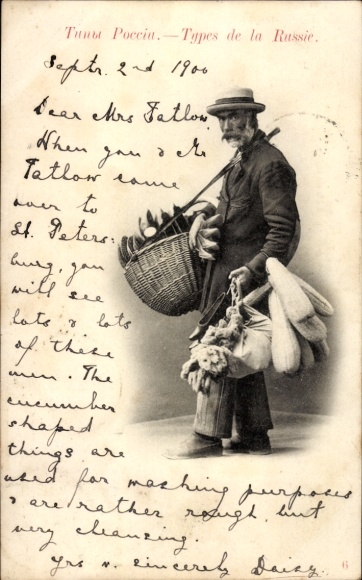 Типы Россіи.—Types de la Russie.
Septr. 2nd 1900
Dear Mrs Tatlow
When you & Mr
Tatlow come
over to
St. Peters:
burg, you
will see
lots & lots
of these
men. The
cucumber
shaped
things are
used for washing purposes
& are rather rough but
very cleansing.
Yrs v. sincerely Daisy.
6